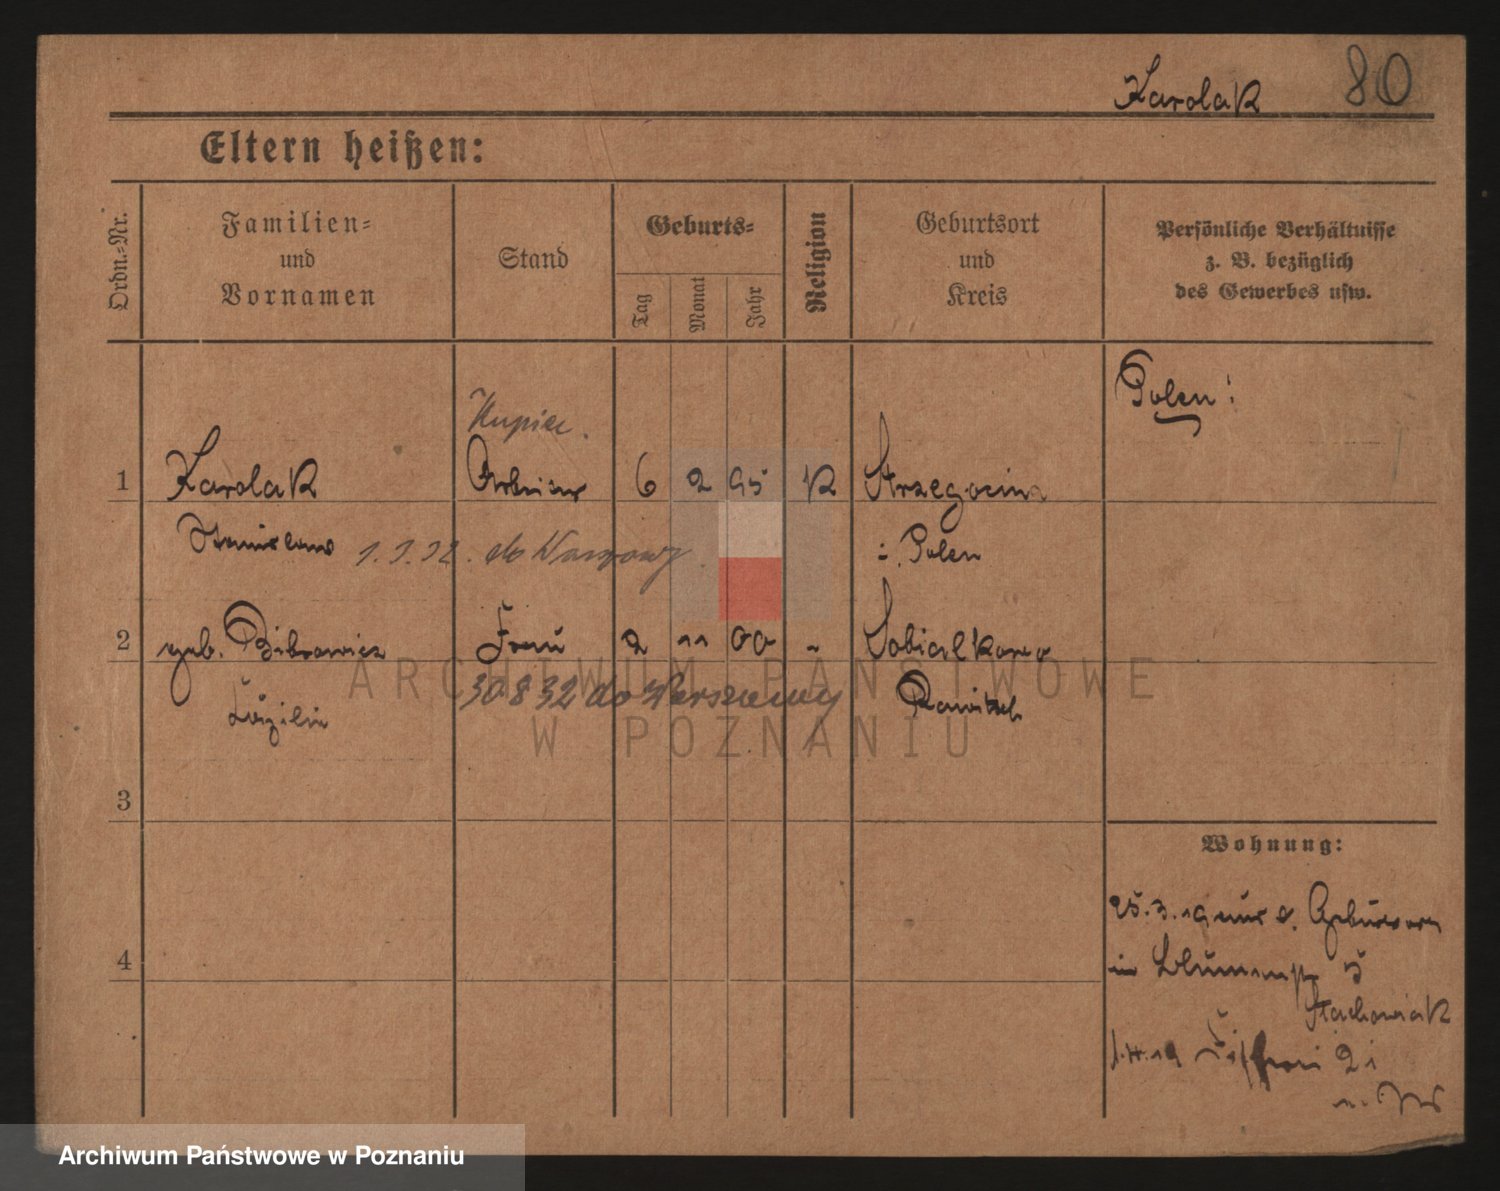 Karolak 80
Eltern heißen:
Ordn.-Nr.
Familien-
und
Vornamen
Stand
Geburts-
Tag
Monat
Jahr
Religion
Geburtsort
und
Kreis
Persönliche Verhältnisse
z. B. bezüglich
des Gewerbes usw.
Polen:
Kupiec.
1 Karolak Arbeiter 6 2 95 K Strzegocina
Stanislaus do Warszawy i. Polen
2 geb. Bibrowicz Frau 2 11 00 " Sobialkowo
30 8 32 do Warszawy Rawitsch
ARCHIWUM PAŃSTWOWE
W POZNANIU
3
Wohnung:
25.3.19
4 in Blumenstr 5
Stachowiak
Archiwum Państwowe w Poznaniu